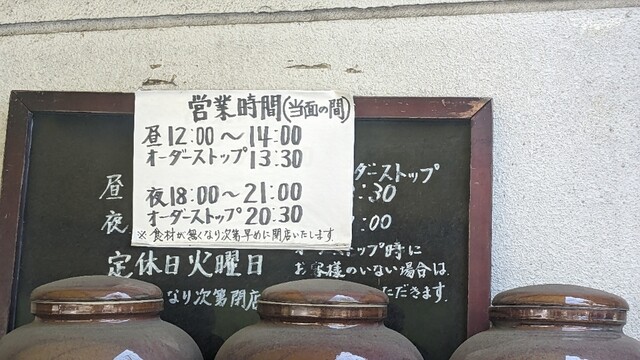 営業時間(当面の間)
昼12:00～14:00
オーダーストップ13:30
夜18:00～21:00
オーダーストップ20:30
※食材が無くなり次第早めに閉店いたします。
昼
ダーストップ
:30
夜
:00
定休日火曜日
なり次第閉店
オーダーストップ時に
お客様のいない場合は
ただきます。